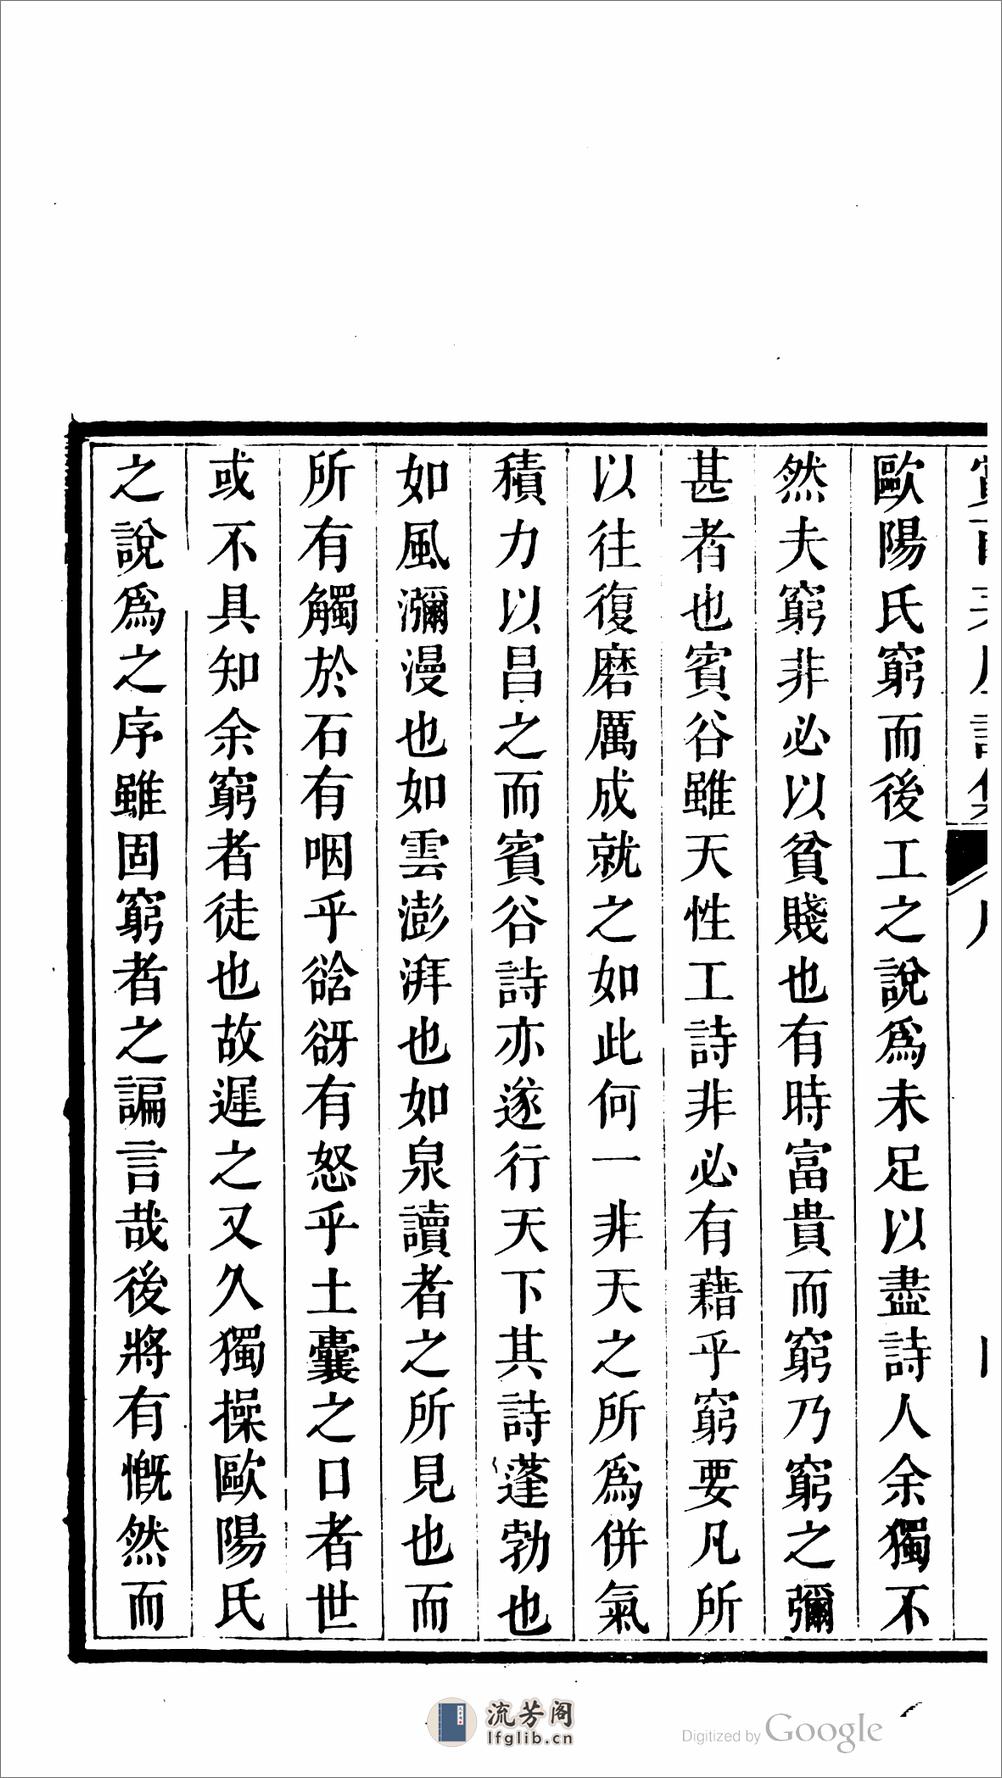 歐陽氏窮而後工之說爲未足以盡詩人余獨不
然夫窮非必以貧賤也有時富貴而窮乃窮之彌
甚者也賓谷雖天性工詩非必有藉乎窮要凡所
以往復磨厲成就之如此何一非天之所爲併氣
積力以昌之而賓谷詩亦遂行天下其詩蓬勃也
如風瀰漫也如雲澎湃也如泉讀者之所見也而
所有觸於石有咽乎谽谺有怒乎土囊之口者世
或不具知余窮者徒也故遲之又久獨操歐陽氏
之說爲之序雖固窮者之諞言哉後將有慨然而
流芳阁
lfglib.cn
Digitized by Google